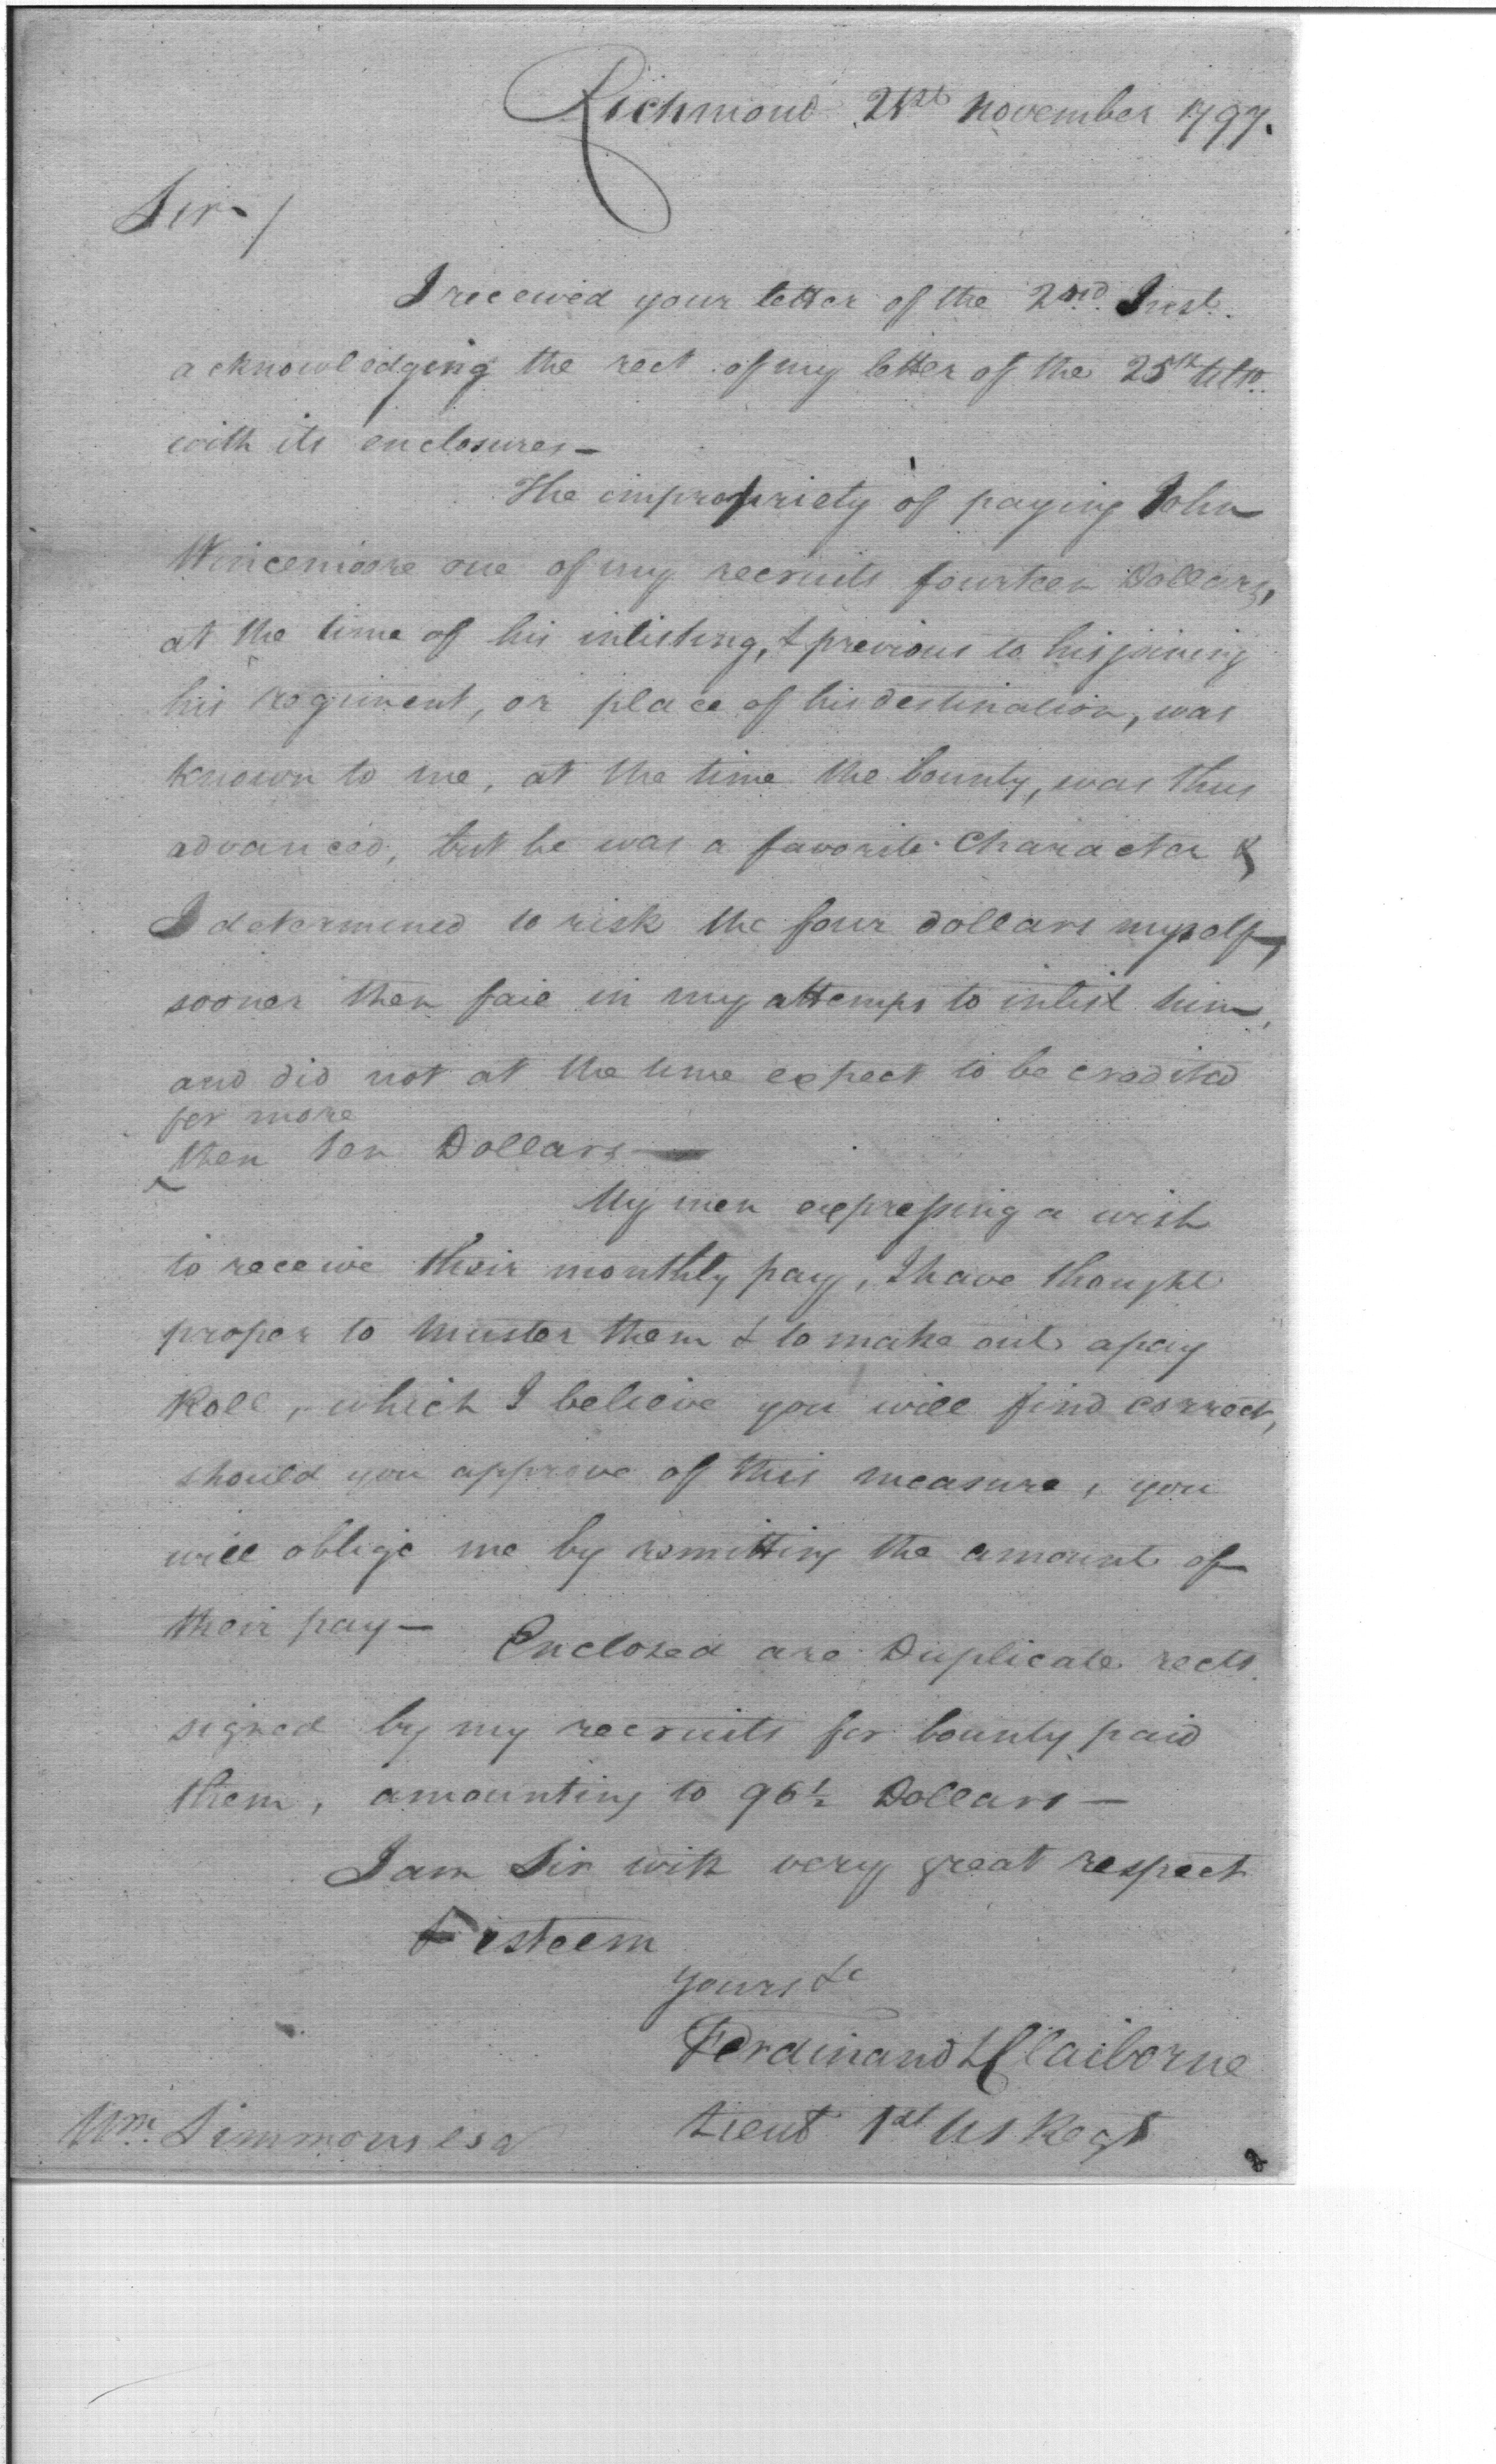 Richmond 21st November 1797.
Sir /
I received your letter of the 2nd. Inst.
acknowledging the rect of my letter of the 25th Ulto.
with its enclosures -
The impropriety of paying John
Wincemoore one of my recruits fourteen Dollars,
at the time of his inlisting, & previous to his joining
his regiment, or place of his destination, was
known to me, at the time the bounty, was thus
advanced, but he was a favorite Character &
I determined to risk the four dollars myself,
sooner then faie in my attemps to inlist him,
and did not at the time expect to be credited
for more
then ten Dollars -
My men expressing a wish
to receive their monthly pay, I have thought
proper to Muster them & to make out a pay
Roll, which I believe you will find correct,
should you approve of this measure, you
will oblige me by remitting the amount of
their pay - Enclosed are Duplicate rects
signed by my recruits for bounty paid
them, amounting to 96½ Dollars -
I am Sir with very great respect
& esteem
yours &c
Ferdinand L Claiborne
Lieut 1st US Regt
Wm. Simmons esq